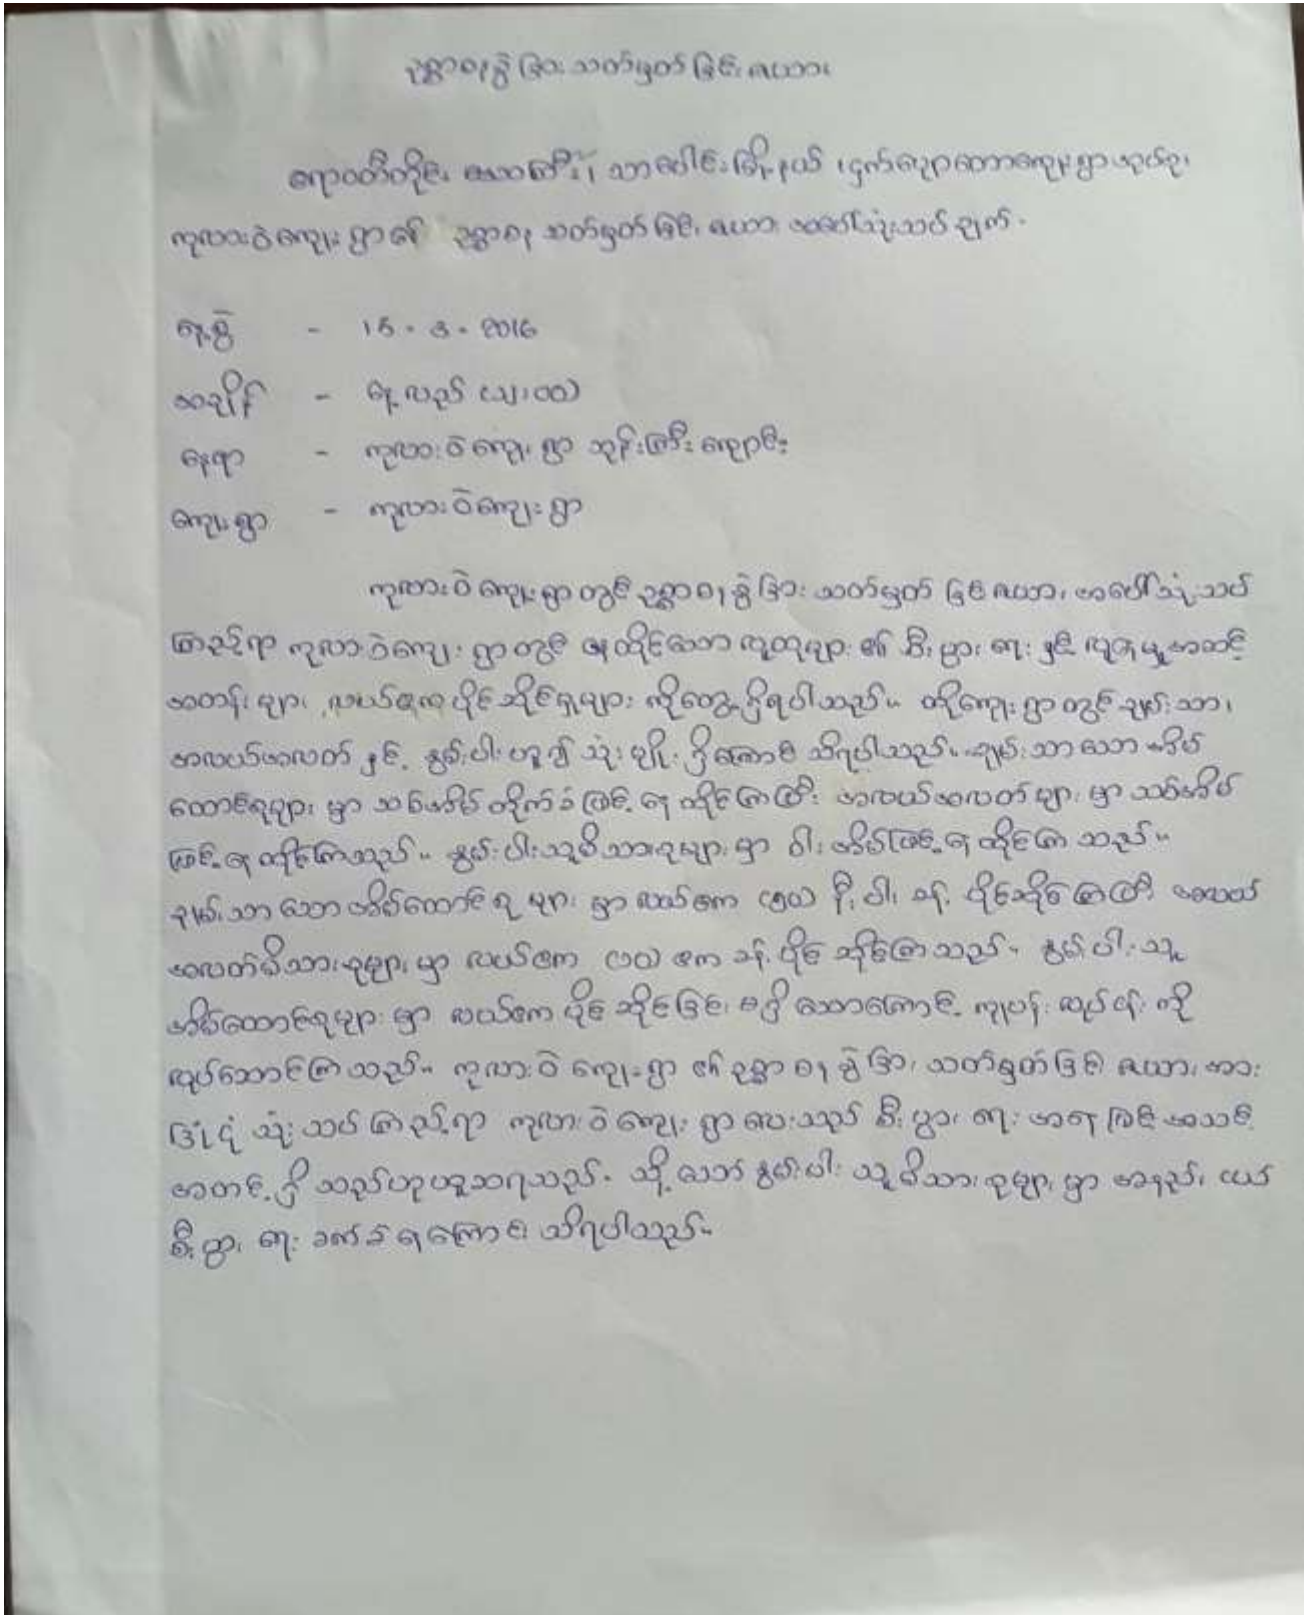 ဥစ္စာဓနခွဲခြားသတ်မှတ်ခြင်းဇယား
ဧရာဝတီတိုင်းဒေသကြီး၊ သာပေါင်းမြို့နယ် ငှက်ပျောတောကျေးရွာအုပ်စု၊
ကုလားဝဲကျေးရွာ၏ ဥစ္စာဓန သတ်မှတ်ခြင်းဇယား အပေါ်သုံးသပ်ချက်
နေ့စွဲ - 15 - 3 - 2016
အချိန် - နေ့လည် ၁၂:၀၀
နေရာ - ကုလားဝဲကျေးရွာ ဘုန်းကြီးကျောင်း
ကျေးရွာ - ကုလားဝဲကျေးရွာ
ကုလားဝဲကျေးရွာတွင် ဥစ္စာဓနခွဲခြားသတ်မှတ်ခြင်းဇယား အပေါ်သုံးသပ်
ကြည့်ရာ ကုလားဝဲကျေးရွာတွင် နေထိုင်သော လူထုများ၏ စီးပွားရေးနှင့် လူနေမှုအဆင့်
အတန်းများ၊ လယ်ဧကပိုင်ဆိုင်မှုများကို တွေ့ရှိရပါသည်။ ထိုကျေးရွာတွင် ချမ်းသာ၊
အလယ်အလတ်နှင့် နွမ်းပါးဟူ၍ သုံးမျိုးရှိကြောင်း သိရပါသည်။ ချမ်းသာသော အိမ်
ထောင်စုများမှာ သစ်အိမ် တိုက်ခံဖြင့် နေထိုင်ကြပြီး အလယ်အလတ်များမှာ သစ်အိမ်
ဖြင့်နေထိုင်ကြသည်။ နွမ်းပါးသူမိသားစုများမှာ ဝါးအိမ်ဖြင့်နေထိုင်ကြသည်။
ချမ်းသာသော အိမ်ထောင်စုများမှာ လယ်ဧက (၅၀) နီးပါးခန့် ပိုင်ဆိုင်ကြပြီး အလယ်
အလတ်မိသားစုများမှာ လယ်ဧက (၁၀) ဧကခန့် ပိုင်ဆိုင်ကြသည်။ နွမ်းပါးသူ
အိမ်ထောင်စုများမှာ လယ်ဧကပိုင်ဆိုင်ခြင်း မရှိသောကြောင့် ကျပန်းလုပ်ငန်းကို
လုပ်ဆောင်ကြသည်။ ကုလားဝဲကျေးရွာ၏ ဥစ္စာဓနခွဲခြားသတ်မှတ်ခြင်းဇယားအား
ခြုံငုံသုံးသပ်ကြည့်ရာ ကုလားဝဲကျေးရွာလေးသည် စီးပွားရေးအခြေအနေ အသင့်
အတင့်ရှိသည်ဟု ယူဆရသည်။ သို့သော် နွမ်းပါးသူမိသားစုများမှာ အနည်းငယ်
စီးပွားရေးခက်ခဲနေကြောင်း သိရပါသည်။